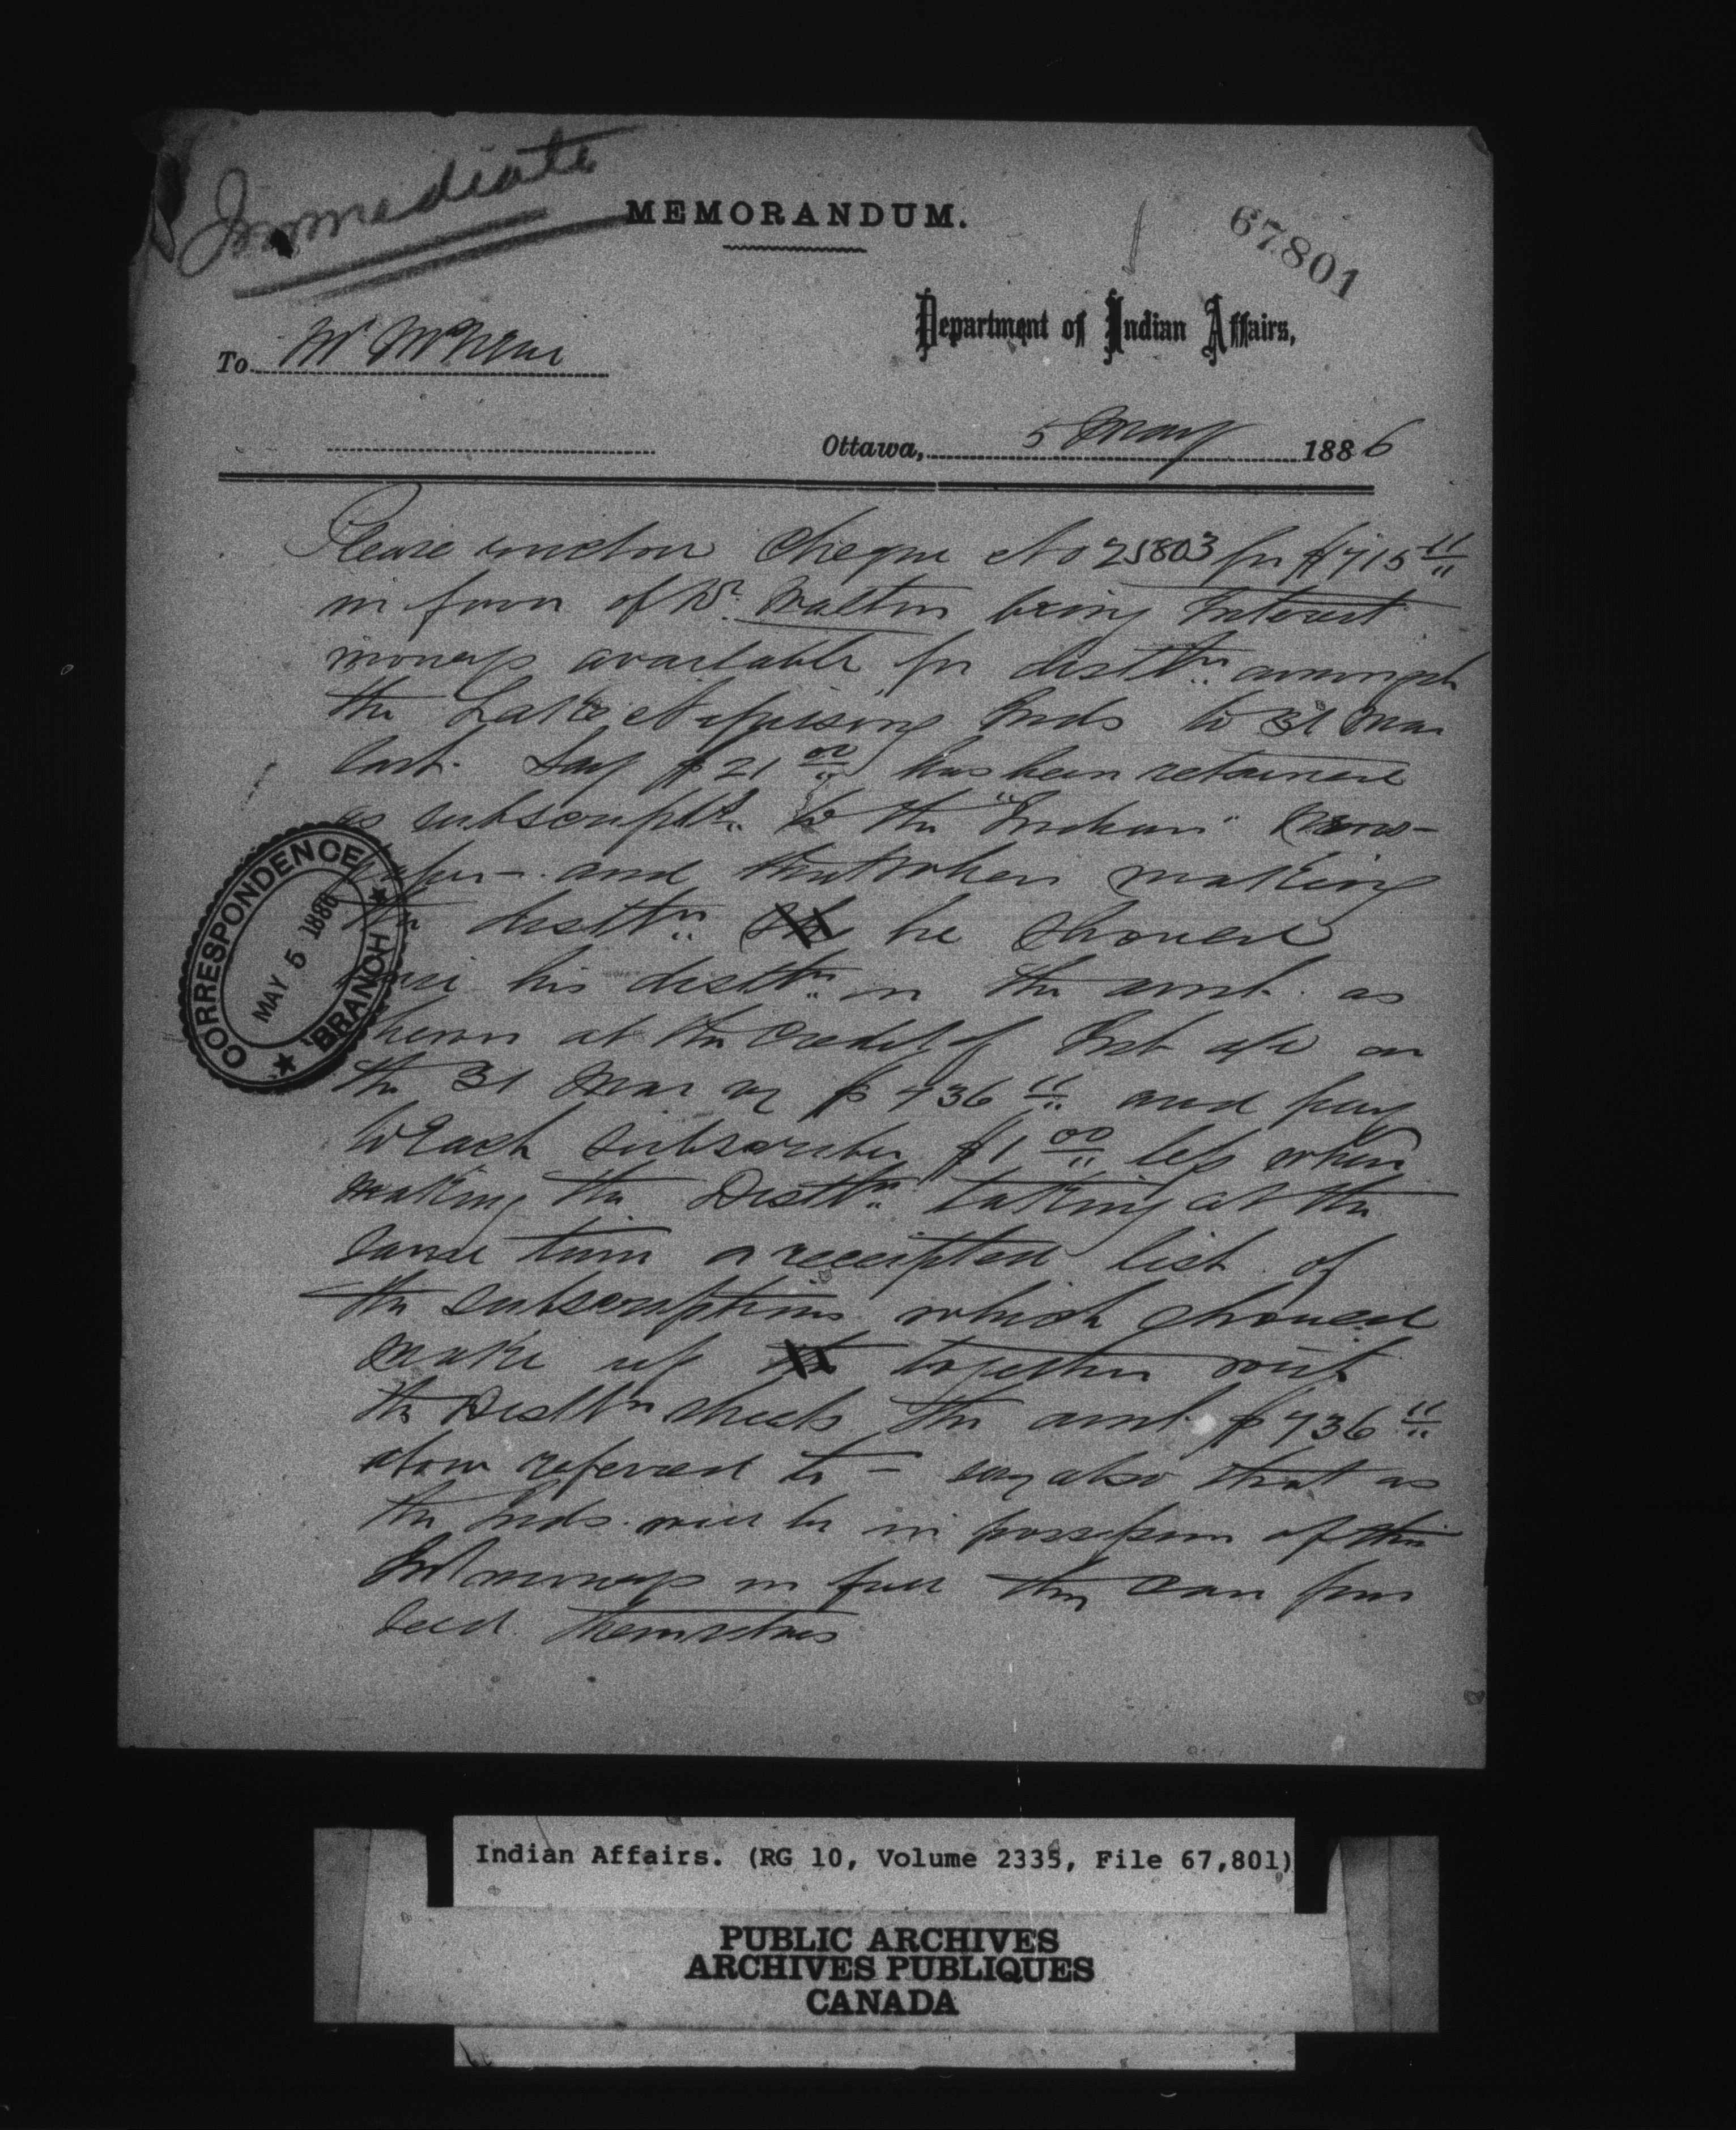 Immediate
MEMORANDUM.
67801
Department of Indian Affairs,
To Mr McNeill
Ottawa, 5 May 1886
Please enclose Cheque No 25803 for $715 11
in favor of Dr. Walton being Interest
moneys available for distbn. amongst
the Lake Nipissing Inds to 31 Mar
last. Say $21 00 has been retained
as subscriptn. to the "Indian" News-
paper - and that when making
the distbn. he should
his distbn. on the amt. as
shewn at the credit of Int a/c on
the 31 Mar $736 11 and pay
to each subscriber $1 00 less when
making the Distbn. taking at the
same time a receipted list of
the subscriptions which should
make up together with
the Distbn sheets the amt. $736 11
above referred to - say also that as
the Inds. will be in possession of their
Int moneys in full they can
seed themselves
CORRESPONDENCE
MAY 5 1886
BRANCH
Indian Affairs. (RG 10, Volume 2335, File 67,801)
PUBLIC ARCHIVES
ARCHIVES PUBLIQUES
CANADA